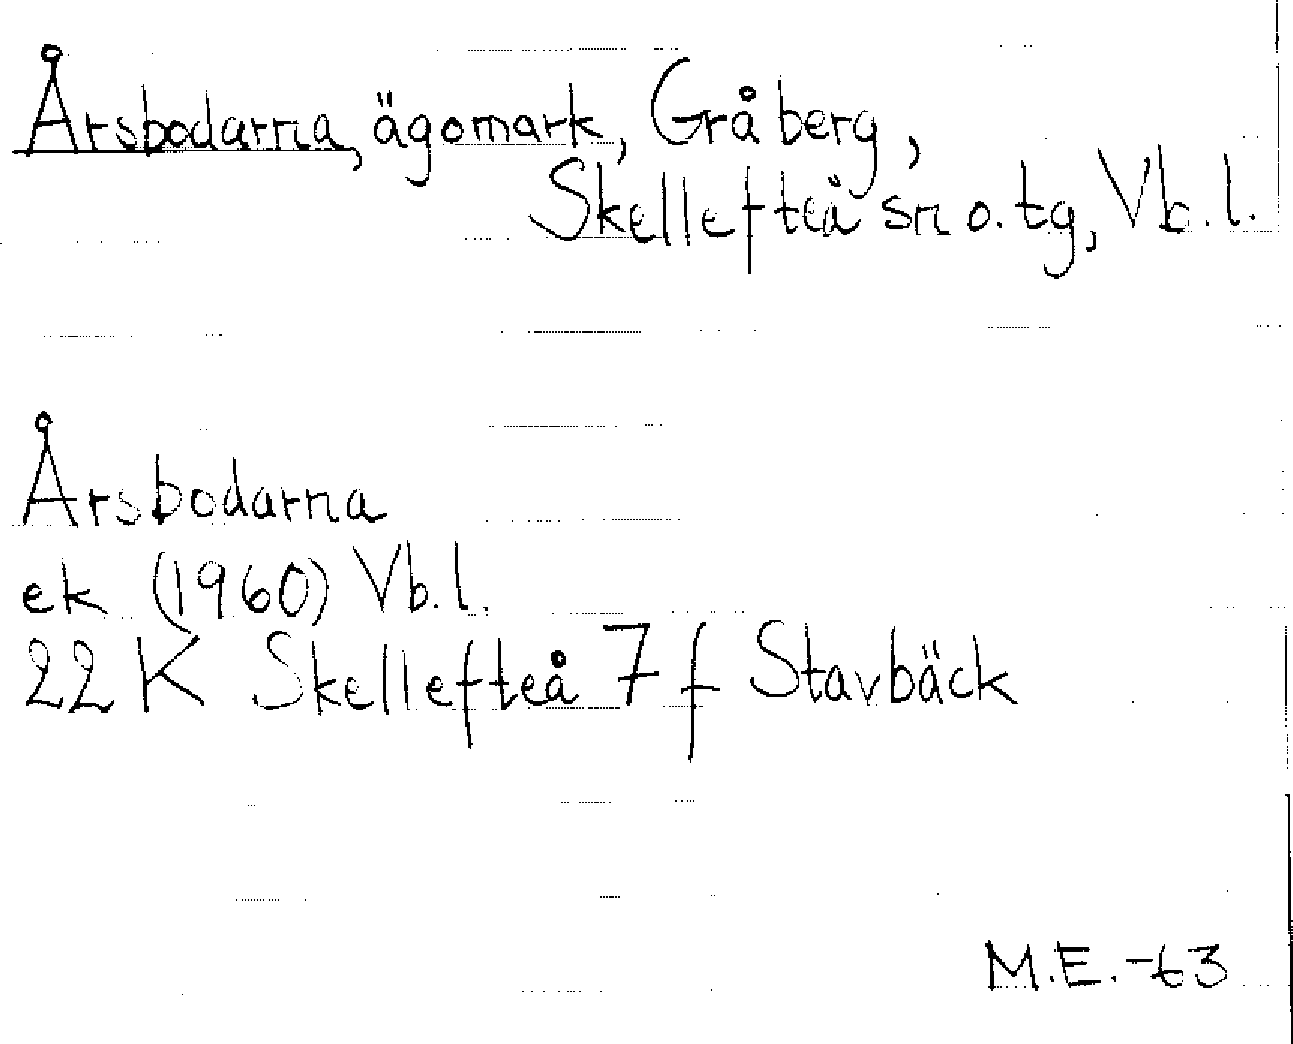 Årsbodarna, ägomark, Gråberg,
Skellefteå sn o. tg, Vb. l.
Årsbodarna
ek (1960) Vb. l.
22 K Skellefteå 7 f Stavbäck
M.E.-63